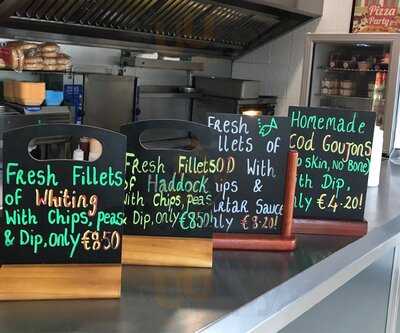 Fresh Fillets
of Whiting
With Chips, peas
& Dip, only €8.50
Fresh Fillets
of Haddock
With Chips, Peas
& Dip, only €8.50
Fresh
Fillets
OD With
ips &
artar Sauce
Homemade
Cod Goujons
skin, no Bone
With Dip,
only €4.20!
Pizza
Party